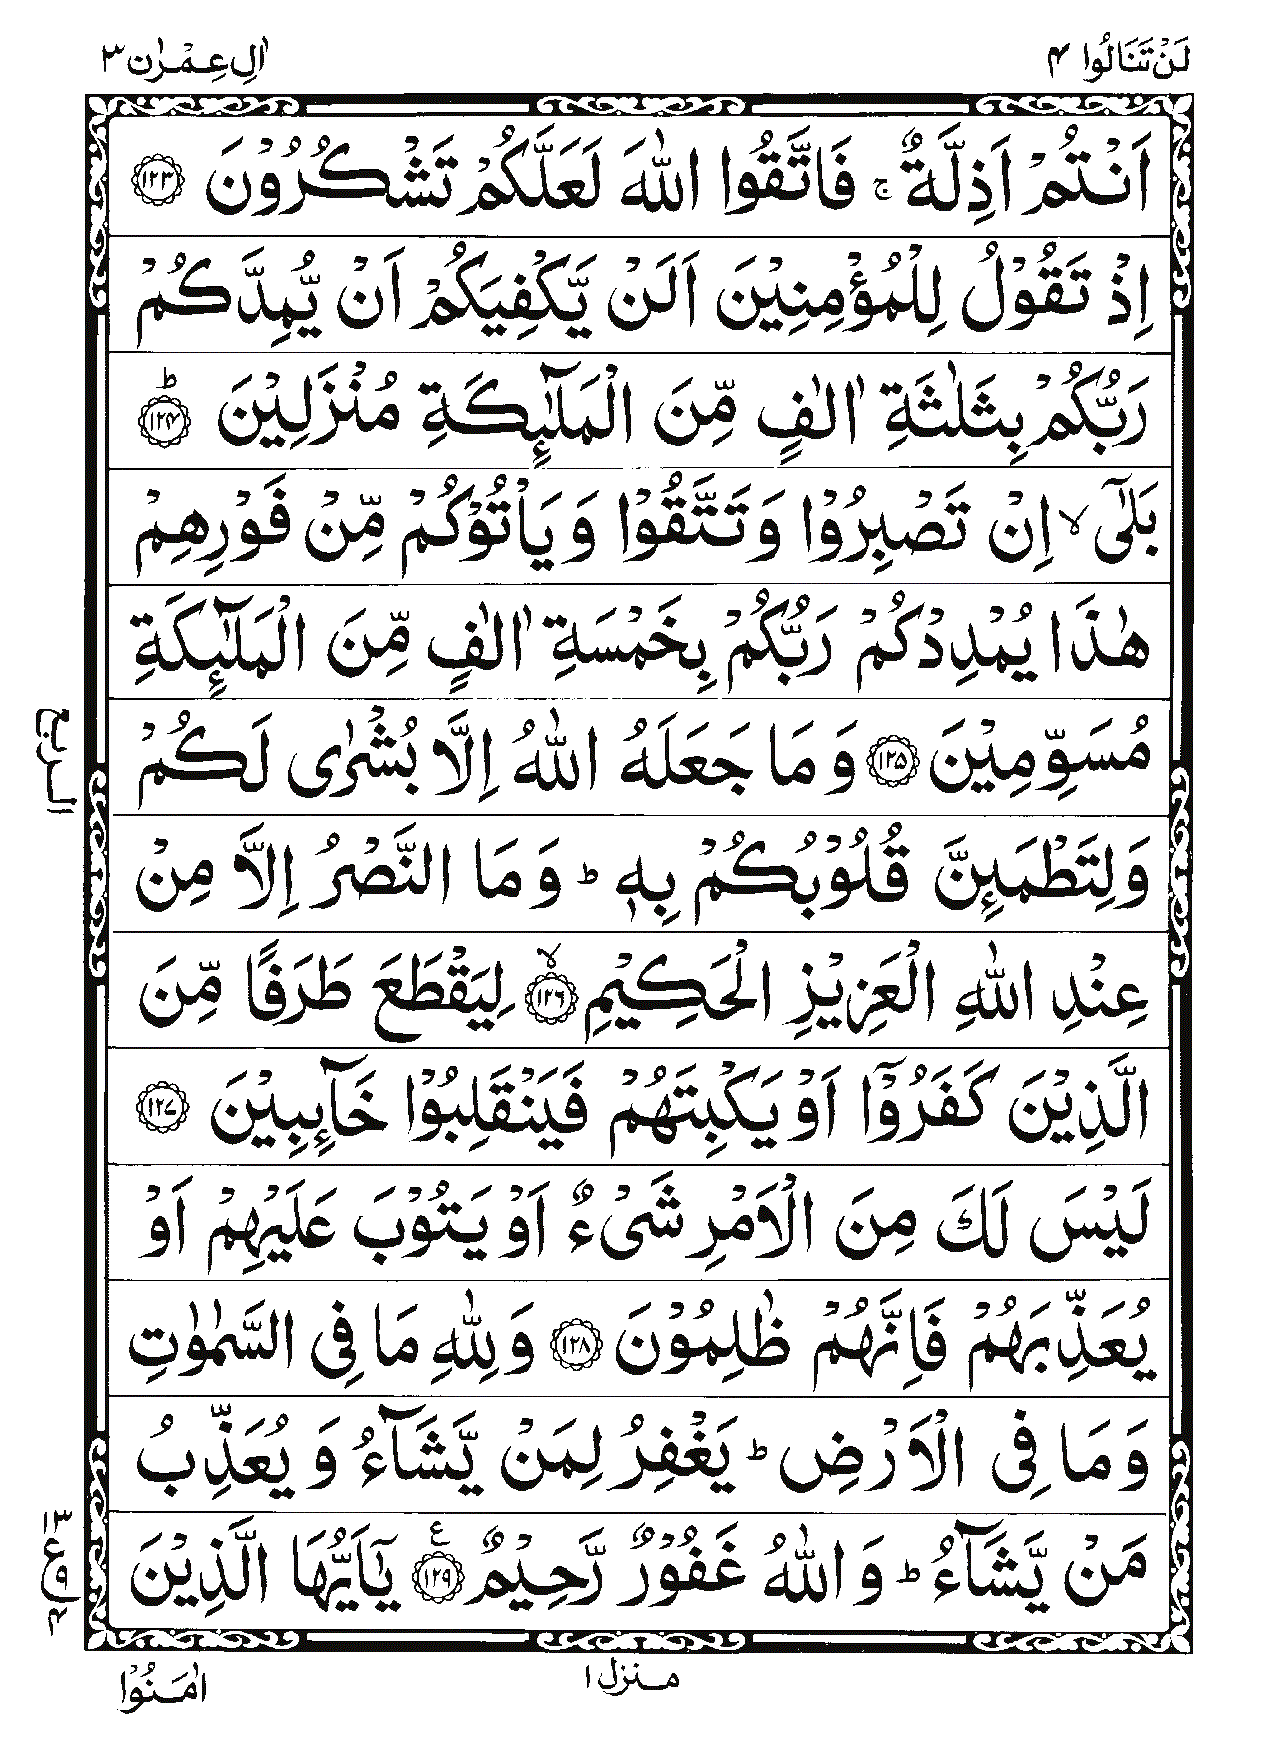 لَنْ تَنَالُوا ۴
اٰلِ عِمْرٰن ۳
اَنْتُمْ اَذِلَّةٌ ۚ فَاتَّقُوا اللّٰهَ لَعَلَّكُمْ تَشْكُرُوْنَ ﴿۱۲۳﴾
اِذْ تَقُوْلُ لِلْمُؤْمِنِيْنَ اَلَنْ يَّكْفِيَكُمْ اَنْ يُّمِدَّكُمْ
رَبُّكُمْ بِثَلٰثَةِ اٰلٰفٍ مِّنَ الْمَلٰٓئِكَةِ مُنْزَلِيْنَ ؕ﴿۱۲۴﴾
بَلٰٓى ۙ اِنْ تَصْبِرُوْا وَتَتَّقُوْا وَيَاْتُوْكُمْ مِّنْ فَوْرِهِمْ
هٰذَا يُمْدِدْكُمْ رَبُّكُمْ بِخَمْسَةِ اٰلٰفٍ مِّنَ الْمَلٰٓئِكَةِ
مُسَوِّمِيْنَ ﴿۱۲۵﴾ وَمَا جَعَلَهُ اللّٰهُ اِلَّا بُشْرٰى لَكُمْ
الربع
وَلِتَطْمَئِنَّ قُلُوْبُكُمْ بِهٖ ؕ وَمَا النَّصْرُ اِلَّا مِنْ
عِنْدِ اللّٰهِ الْعَزِيْزِ الْحَكِيْمِ ۙ﴿۱۲۶﴾ لِيَقْطَعَ طَرَفًا مِّنَ
الَّذِيْنَ كَفَرُوْۤا اَوْ يَكْبِتَهُمْ فَيَنْقَلِبُوْا خَآئِبِيْنَ ﴿۱۲۷﴾
لَيْسَ لَكَ مِنَ الْاَمْرِ شَىْءٌ اَوْ يَتُوْبَ عَلَيْهِمْ اَوْ
يُعَذِّبَهُمْ فَاِنَّهُمْ ظٰلِمُوْنَ ﴿۱۲۸﴾ وَلِلّٰهِ مَا فِى السَّمٰوٰتِ
وَمَا فِى الْاَرْضِ ؕ يَغْفِرُ لِمَنْ يَّشَآءُ وَيُعَذِّبُ
مَنْ يَّشَآءُ ؕ وَاللّٰهُ غَفُوْرٌ رَّحِيْمٌ ﴿۱۲۹﴾ع يٰۤاَيُّهَا الَّذِيْنَ
۱۳
ع
۹
۴
منزل ۱
اٰمَنُوْا